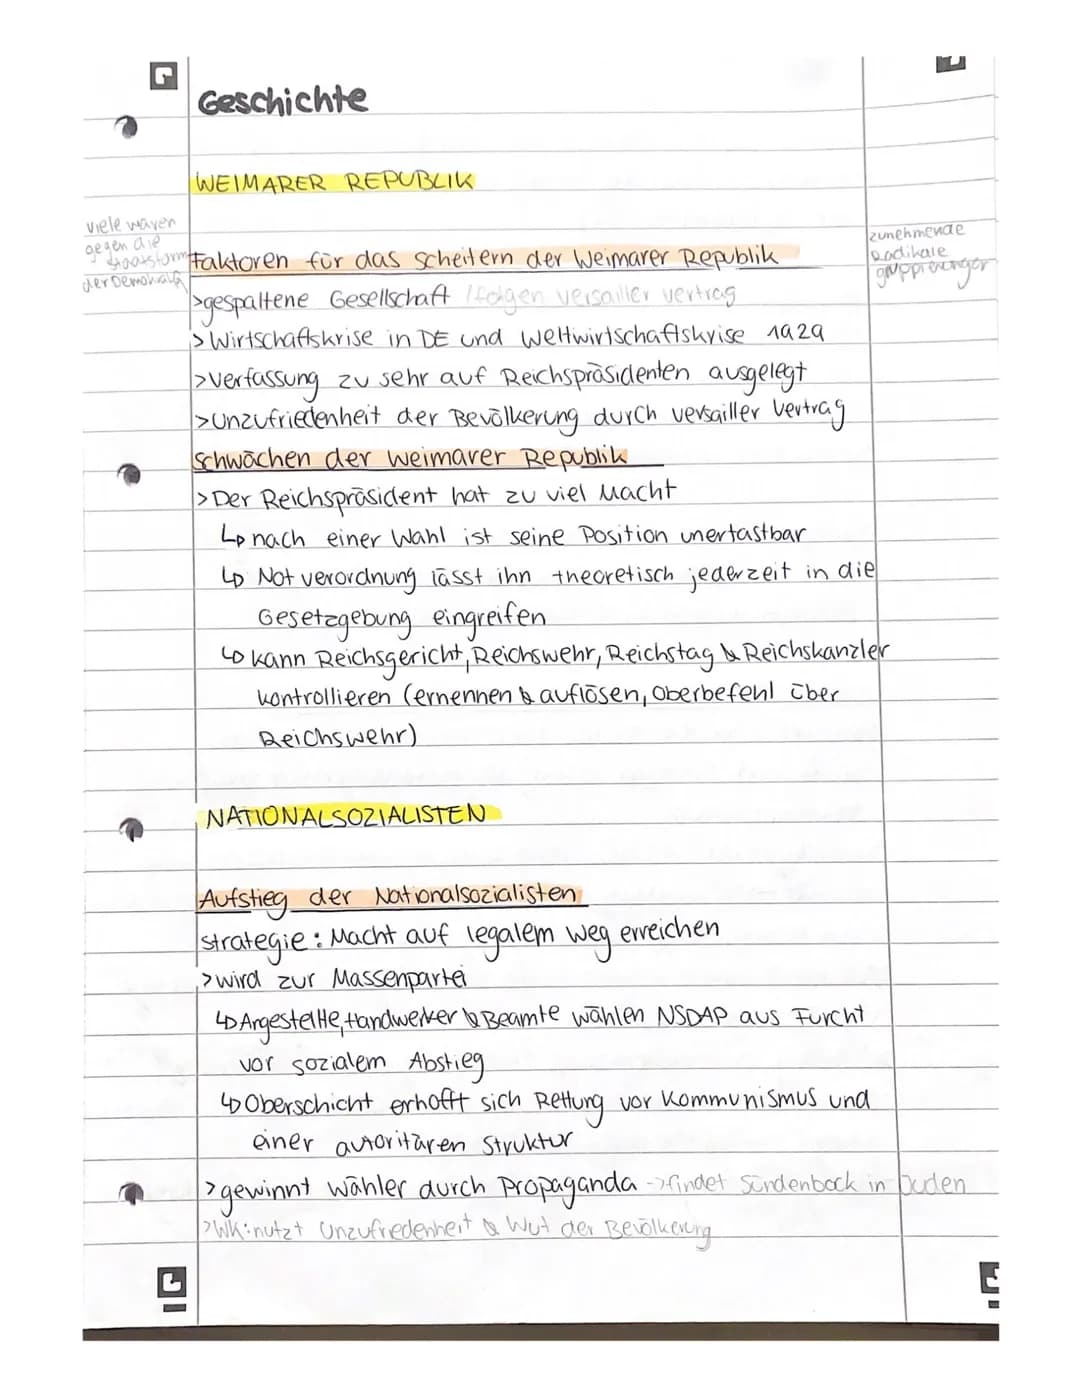 Geschichte
WEIMARER REPUBLIK
viele waren
gegen die
Staatsform
der Demokratie
zunehmende
Radikale
gruppierungen
Faktoren für das scheitern der Weimarer Republik
>gespaltene Gesellschaft /folgen versailler vertrag
>Wirtschaftskrise in DE und Weltwirtschaftskrise 1929
>Verfassung zu sehr auf Reichspräsidenten ausgelegt
>Unzufriedenheit der Bevölkerung durch versailler Vertrag
Schwächen der weimarer Republik
>Der Reichspräsident hat zu viel Macht
↳ nach einer Wahl ist seine Position unertastbar
↳ Notverordnung lässt ihn theoretisch jederzeit in die
Gesetzgebung eingreifen
↳ kann Reichsgericht, Reichswehr, Reichstag & Reichskanzler
kontrollieren (ernennen & auflösen, Oberbefehl über
Reichswehr)
NATIONALSOZIALISTEN
Aufstieg der Nationalsozialisten
strategie: Macht auf legalem weg erreichen
>wird zur Massenpartei
↳ Angestellte, Handwerker & Beamte wählen NSDAP aus Furcht
vor sozialem Abstieg
↳ Oberschicht erhofft sich Rettung vor Kommunismus und
einer autoritären Struktur
>gewinnt wähler durch Propaganda ->findet Sündenbock in Juden
>WK: nutzt Unzufredenheit & Wut der Bevölkerung